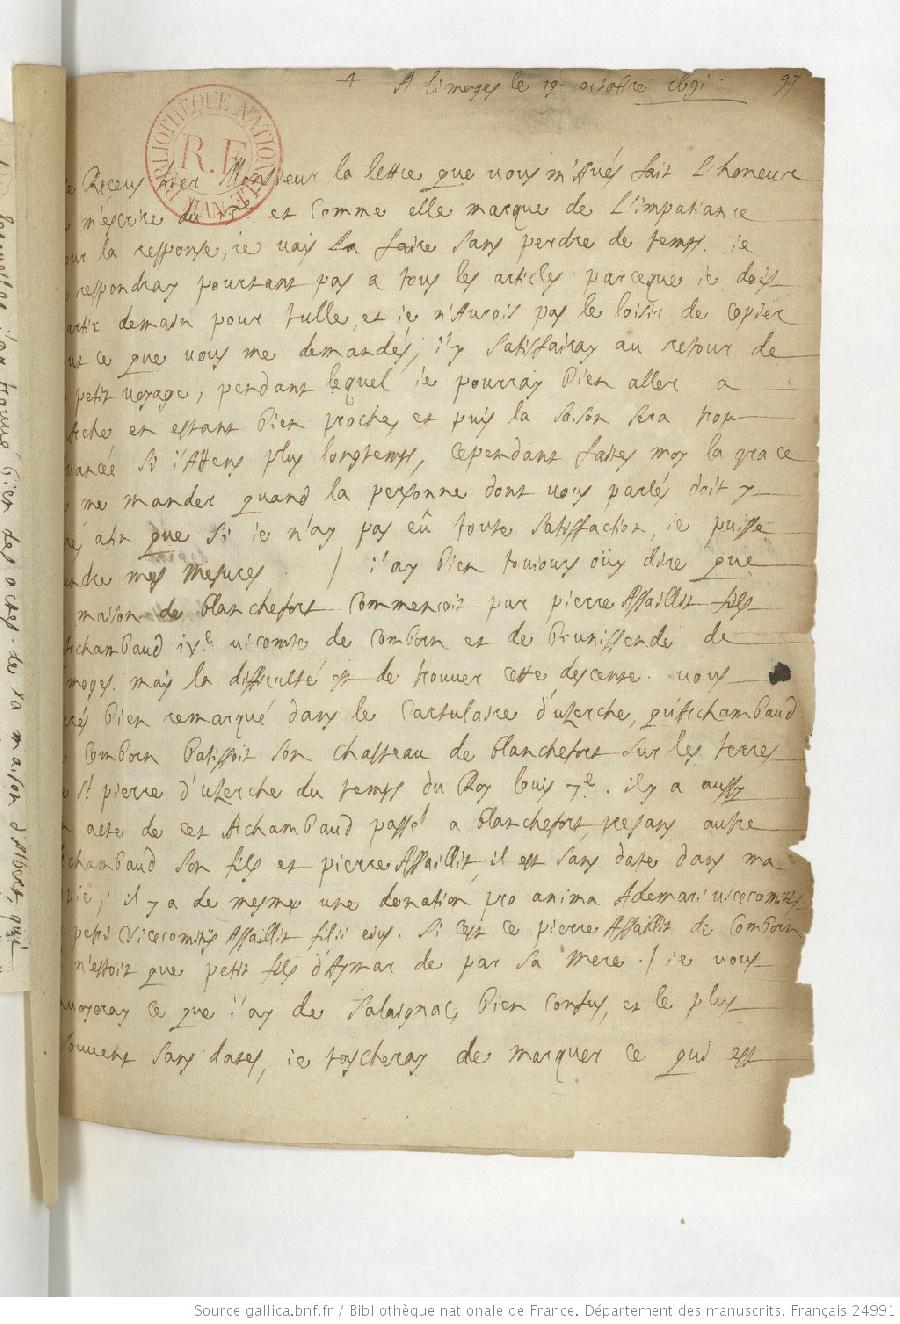 A limoges le 19 octobre 1691 97
BIBLIOTHÈQUE NATIONALE
R.F.
MANUSCRITS
Reçeus hier Monsieur la lettre que vous m'Avés fait l'honeur
m'escrire du et comme elle marque de L'impatiance
our la response, ie vais La faire sans perdre de temps. ie
respondray pourtant pas a tous les articles parceque ie dois
artir demain pour tulle, et ie n'Aurois pas le loisir de copier
ut ce que vous me demandés, i'y satisfairay au retour de
petit voyage, pendant lequel ie pourray bien aller a
en estant bien proche, et puis la saison sera trop
uancée si i'Attens plus longtemps, cependant faites moy la grace
me mander quand la personne dont vous parlés doit y
afin que si ie n'ay pas eû toute satisfaction, ie puisse
endre mes mesures. / i'ay bien tousiours oüy dire que
maison de blanchefort commencoit par pierre Assaillit fils
Archambaud ix.e vicomte de Comborn et de brunissende de
moges. mais la difficulté est de trouver cette descente. vous
rés bien remarqué dans le Cartulaire d'uzerche, qu'Archambaud
Comborn batissoit son chasteau de blanchefort sur les terres
St pierre d'uzerche du temps du Roy louis 7.e. il y a aussy
acte de cet Archambaud passé a blanchefort, presans autre
chambaud son fils et pierre Assaillit, il est sans date dans ma
pie; il y a de mesme une donation pro anima Ademari vicecomitis
petri vicecomitis Assaillit filii eius. si cest ce pierre Assaillit de Comborn
n'estoit que petit fils d'Aymar de par sa mere. / ie vous
nuoyeray ce que i'ay de salaignac, bien confus, et le plus
souuent sans dates, ie tascheray de marquer ce qui est
bien des actes de la maison d'Albert, qui
Source gallica.bnf.fr / Bibliothèque nationale de France. Département des manuscrits. Français 24991